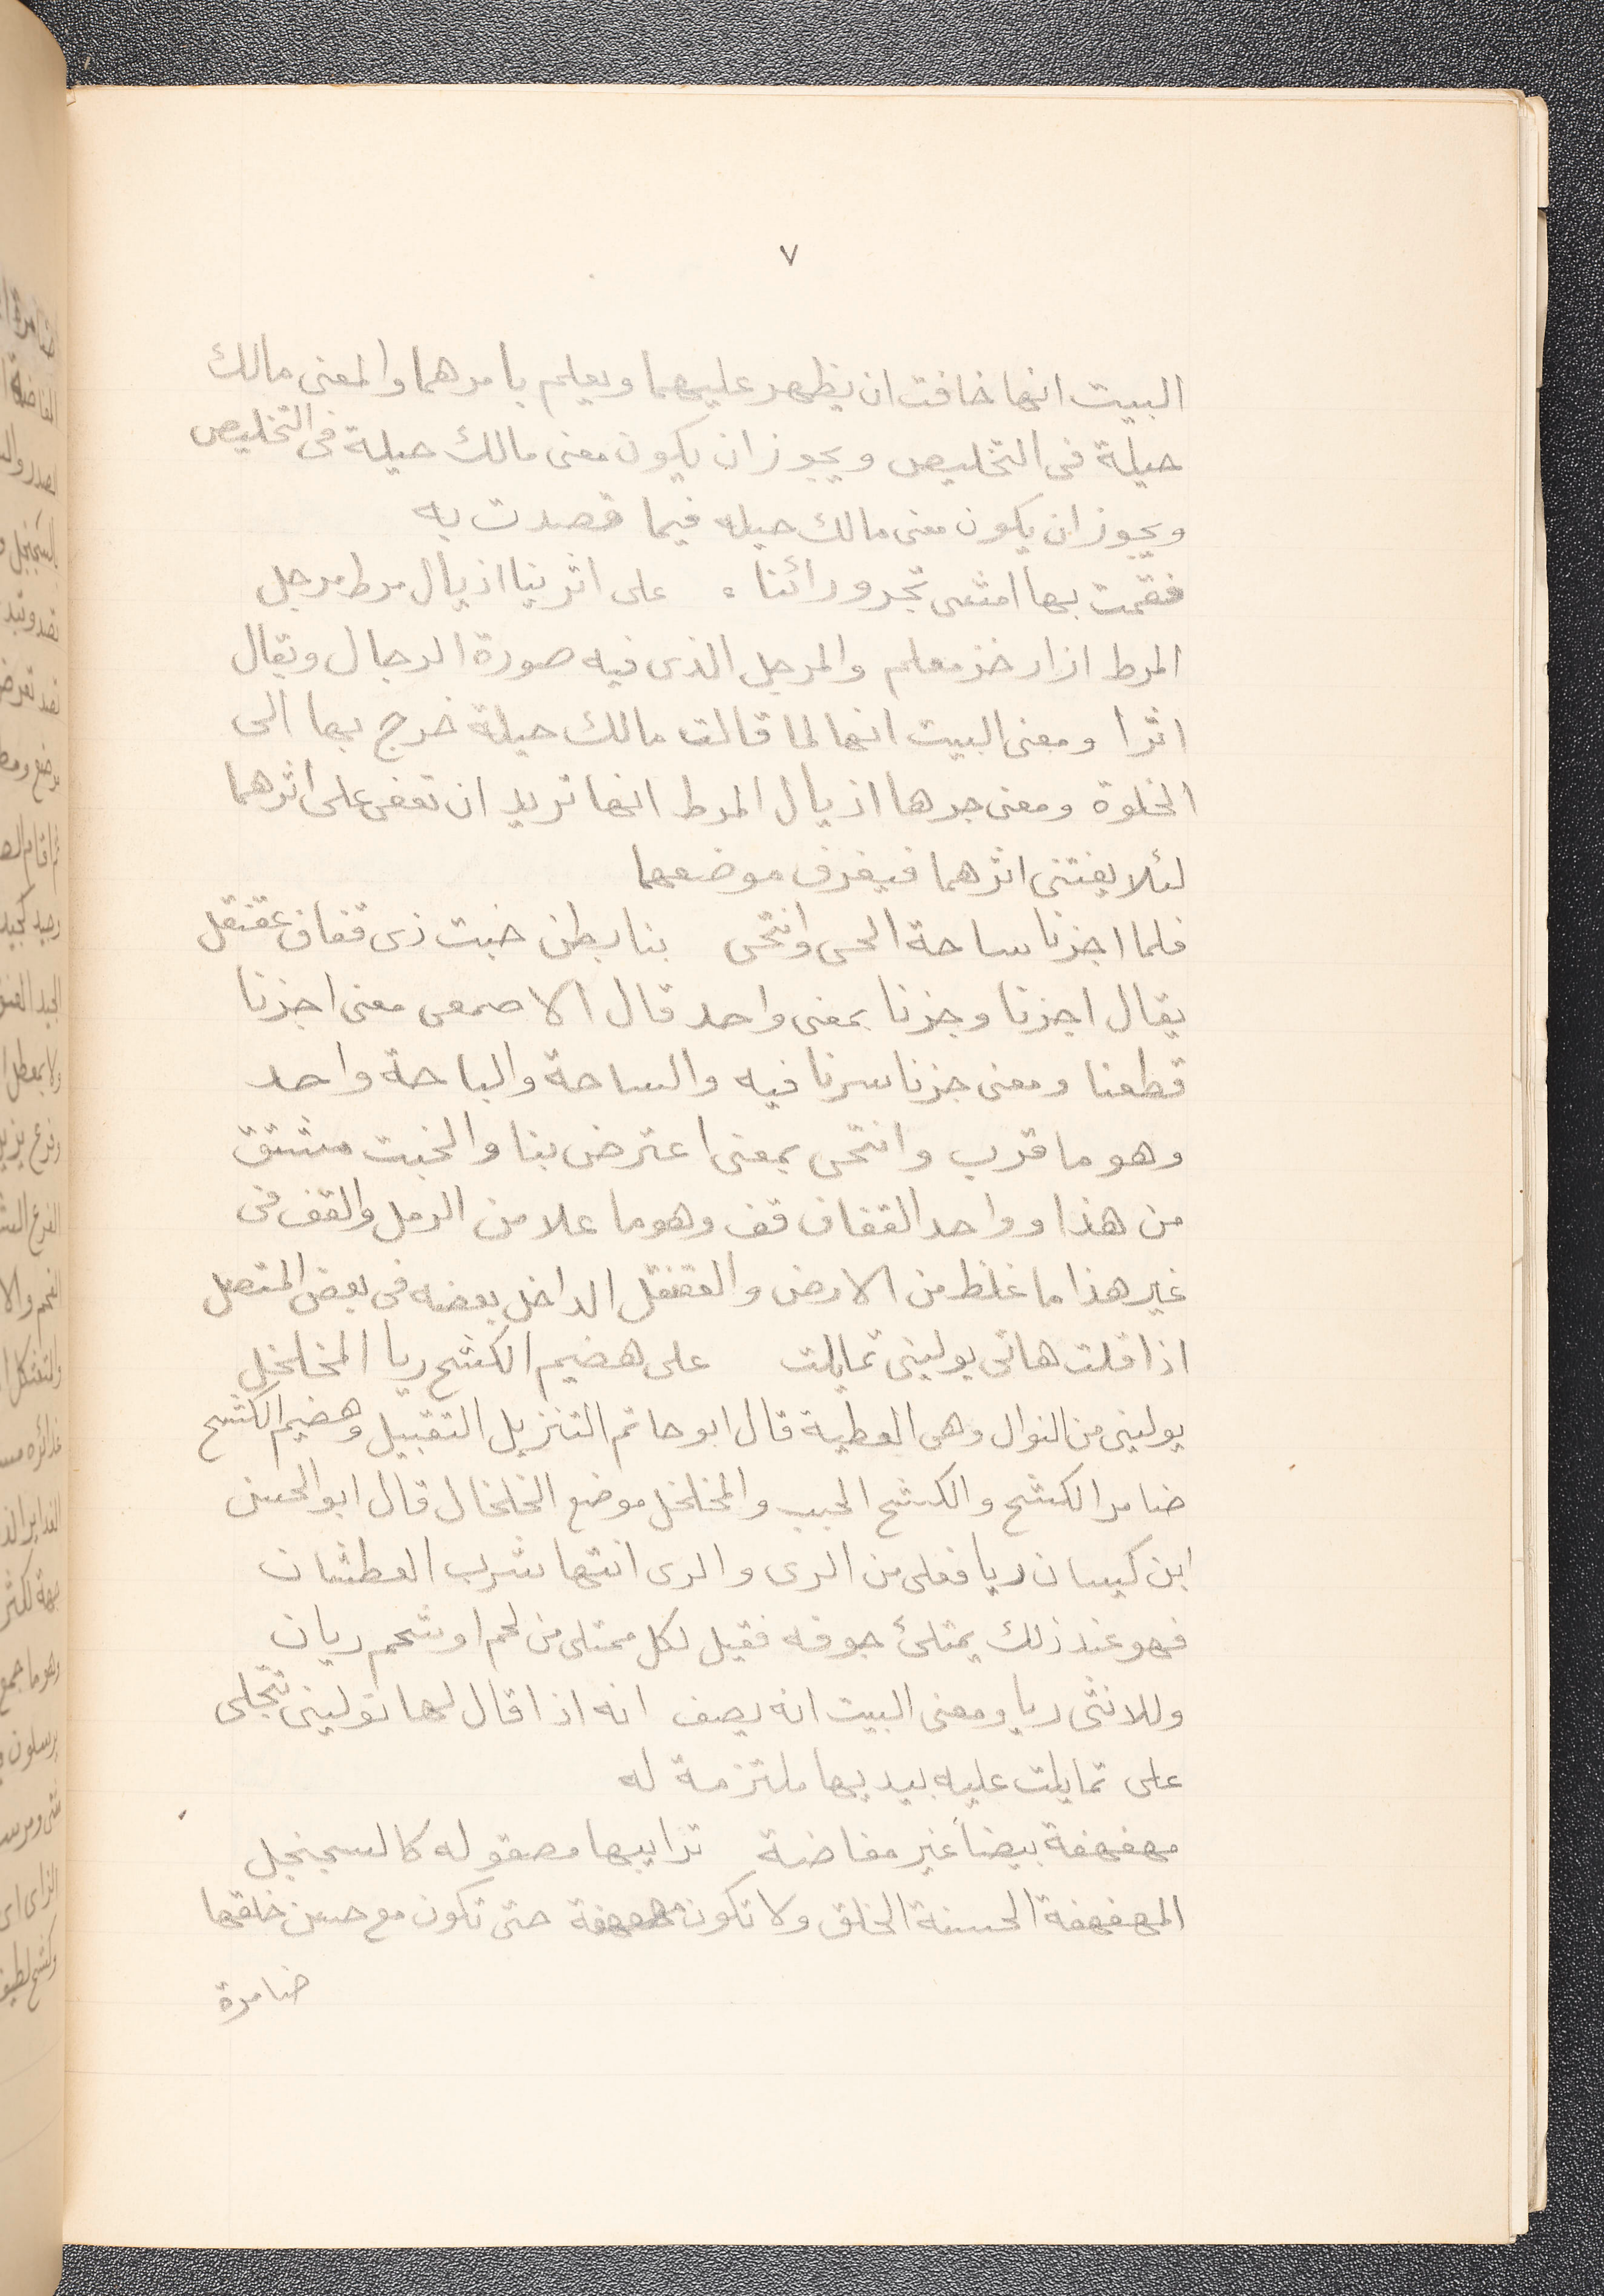 ٧
البيت انها خافت ان يظهر عليهما ويعلم بامرهما والمعنى مالك
حيلة فى التخليص ويجوز ان يكون معنى مالك حيلة فى التخليص
ويجوز ان يكون معنى مالك حيله فيما قصدت به
فقمت بها امشى تجر ورائنا ، على اثرينا اذيال مرط مرجل
المرط ازار خز معلم والمرجل الذى فيه صورة الرجال ويقال
اثرا ومعنى البيت انها لما قالت مالك حيلة خرج بها الى
الخلوة ومعنى جرها اذيال المرط انها تريد ان تعفى على اثرهما
لئلا يفتنى اثرهما فيعرف موضعهما
فلما اجزنا ساحة الحى وانتحى بنا بطن خبت ذى قفاف عقنقل
يقال اجزنا وجزنا بمعنى واحد قال الاصمعى معنى اجزنا
قطعنا ومعنى جزنا سرنا فيه والساحة والباحة واحد
وهو ما قرب وانتحى بمعنى اعترض بنا والخبت مشتق
من هذا وواحد القفاف قف وهو ما علا من الرمل والقف فى
غير هذا ما غلظ من الارض والعقنقل الداخل بعضه فى بعض المتصل
اذا قلت هاتى يولينى تمايلت على هضيم الكشح ريا المخلخل
يولينى من النوال وهى العطية قال ابو حاتم التنزيل التقبيل وهضيم الكشح
ضامر الكشح والكشح الجبب والمخلخل موضع الخلخال قال ابو الحسن
ابن كيسان ريا فعلى من الرى والرى انتها شرب العطشان
فهو عند ذلك يمتلئ جوفه فقيل لكل ممتلى من لحم او شحم ريان
وللانثى ريا ومعنى البيت انه يصف انه اذا قال لها تولينى تتجلى
على تمايلت عليه بيديها ملتزمة له
مهفهفة بيضاً غير مفاضة ترايبها مصقوله كالسجنجل
المهفهفة الحسنة الخلق ولا تكون مهفهفة حتى تكون مع حسن خلقها
ضامرة